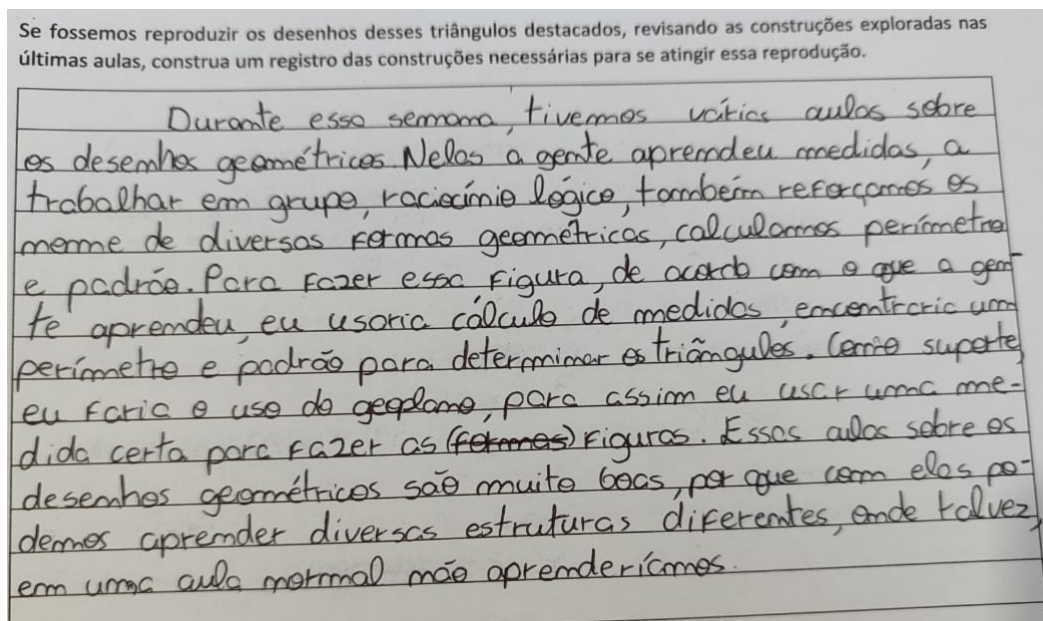 Se fossemos reproduzir os desenhos desses triângulos destacados, revisando as construções exploradas nas
últimas aulas, construa um registro das construções necessárias para se atingir essa reprodução.
Durante essa semana, tivemos várias aulas sobre
os desenhos geométricos. Nelas a gente aprendeu medidas, a
trabalhar em grupo, raciocínio lógico, também reforçamos os
nome de diversas formas geométricas, calculamos perímetro
e padrão. Para fazer essa figura, de acordo com o que a gen-
te aprendeu, eu usaria cálculo de medidas, encontraria um
perímetro e padrão para determinar os triângulos. Como suporte,
eu faria o uso do geoplano, para assim eu usar uma me-
dida certa para fazer as (formas) figuras. Essas aulas sobre os
desenhos geométricos são muito boas, por que com elas po-
demos aprender diversas estruturas diferentes, onde talvez,
em uma aula normal não aprenderíamos.